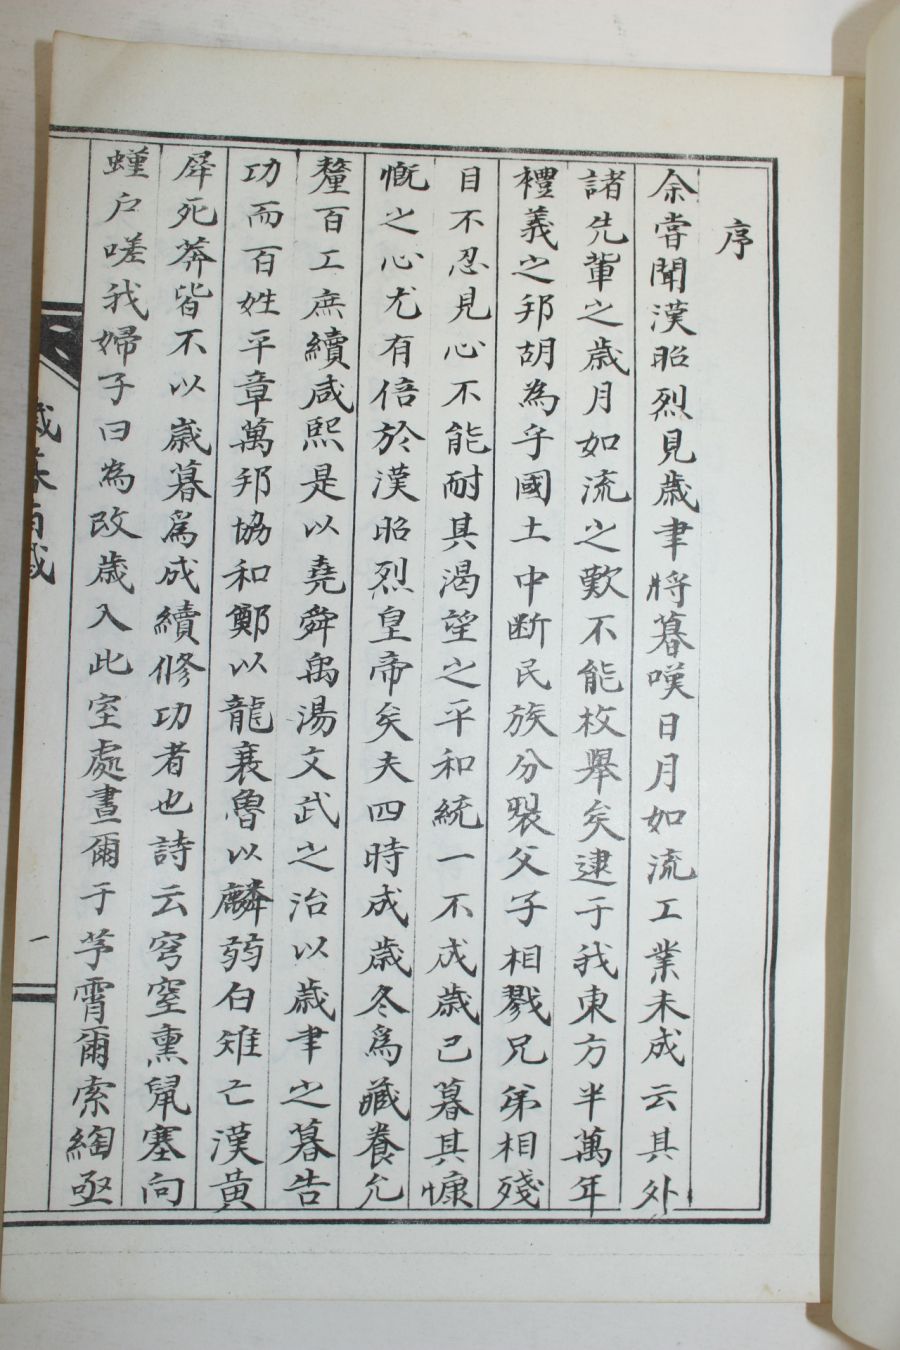 序
余嘗聞漢昭烈見歲聿將暮嘆日月如流工業未成云其外
諸先軰之歲月如流之歎不能枚舉矣逮于我東方半萬年
禮義之邦胡為乎國土中断民族分裂父子相戮兄弟相殘
目不忍見心不能耐其渴望之平和統一不成歲已暮其慷
慨之心尤有倍於漢昭烈皇帝矣夫四時成歲冬爲藏養允
釐百工庶績咸熙是以堯舜禹湯文武之治以歲聿之暮告
功而百姓平章萬邦協和鄭以龍衰魯以麟弱白雉亡漢黃
犀死莾皆不以歲暮爲成績修功者也詩云穹窒熏鼠塞向
墐户嗟我婦子曰為改歲入此室處晝爾于茅霄爾索綯亟
歲暮百感
一